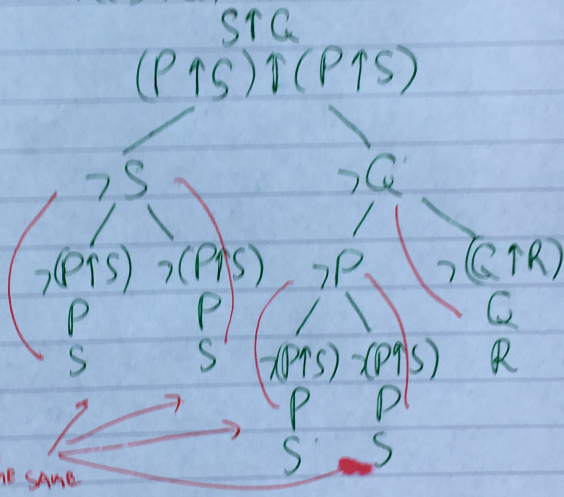 S↑Q
(P↑S)↑(P↑S)
¬S ¬Q
¬(P↑S) ¬(P↑S) ¬P ¬(Q↑R)
P P Q
S S ¬(P↑S) ¬(P↑S) R
P P
S S
SAME